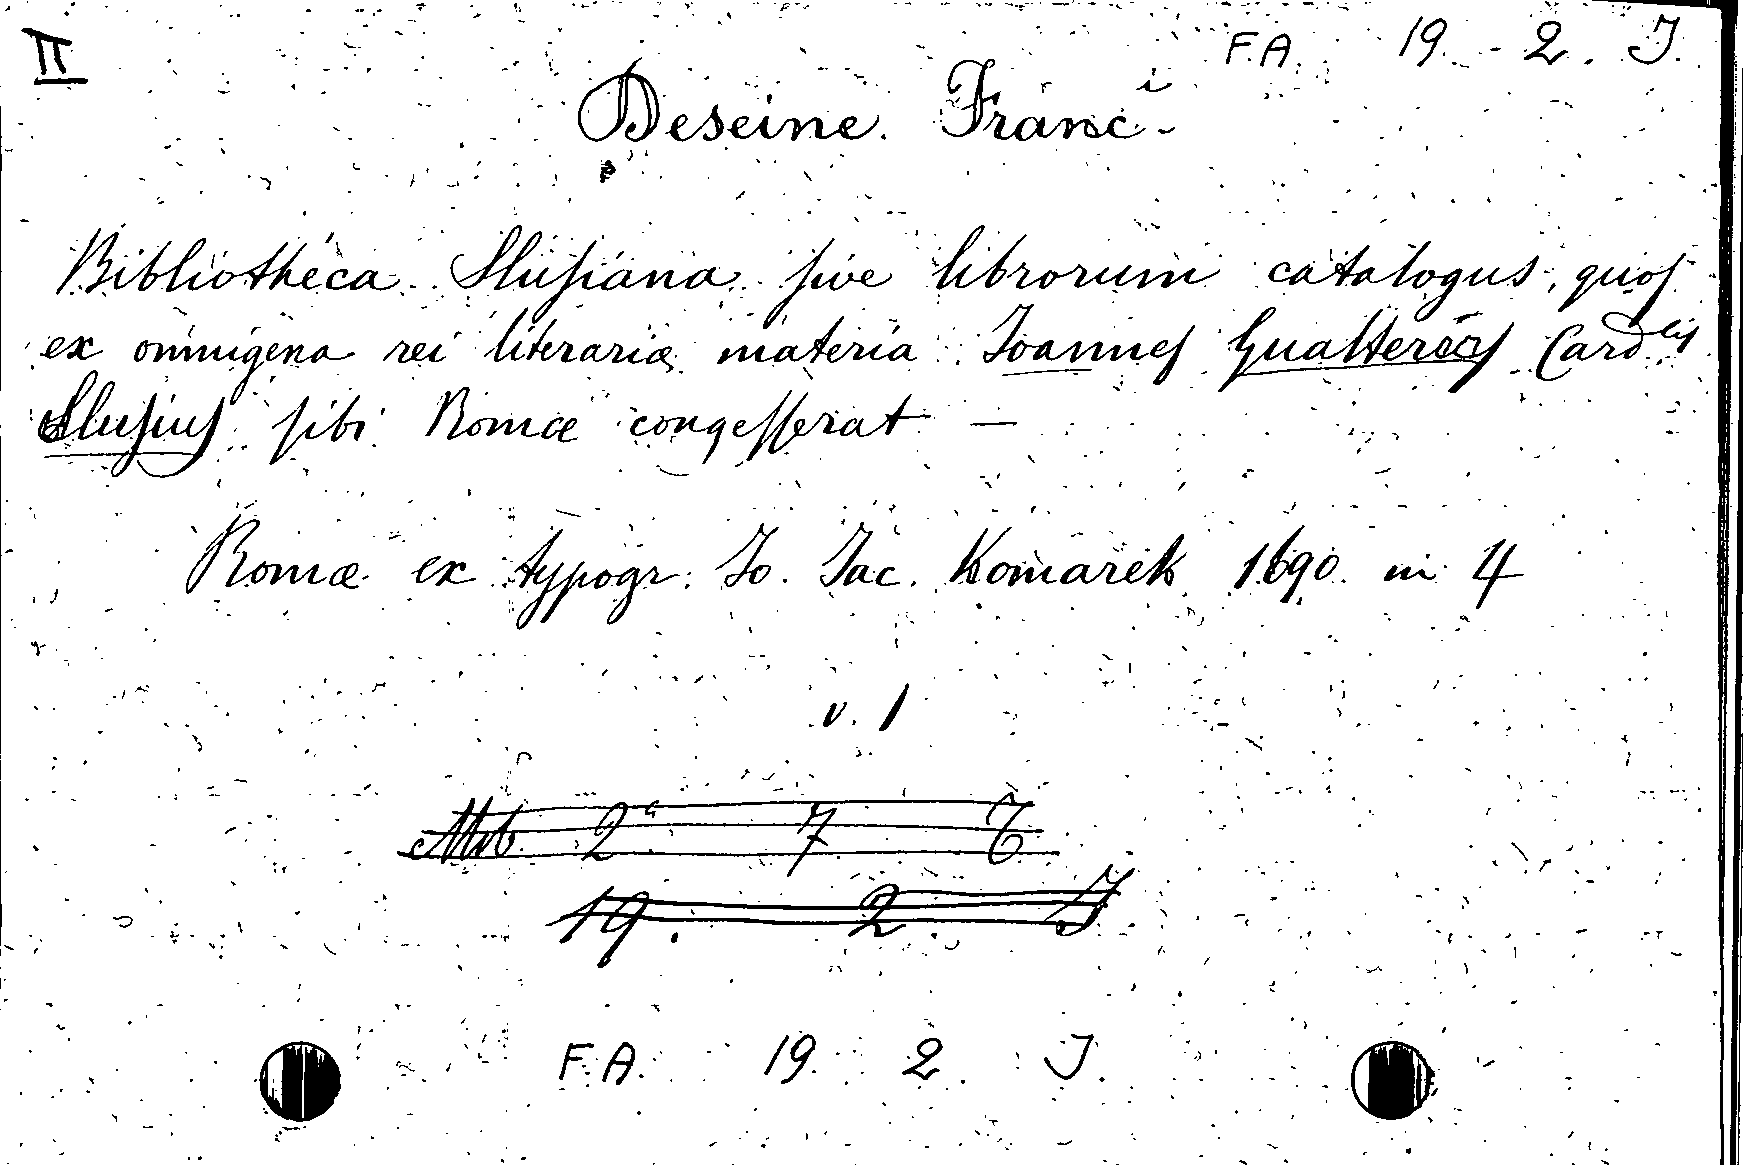 II F.A. 19 - 2. J.
Deseine. Franc.i
Bibliotheca Slusiana sive librorum catalogus, quos
ex omnigena rei literariæ materia Joannes Gualterius Card.lis
Slusius sibi Romæ congesserat —
Romæ ex typogr. Jo. Jac. Komarek 1690. in 4
v. 1
2a 7
19. 2. J
F.A. 19. 2. J.